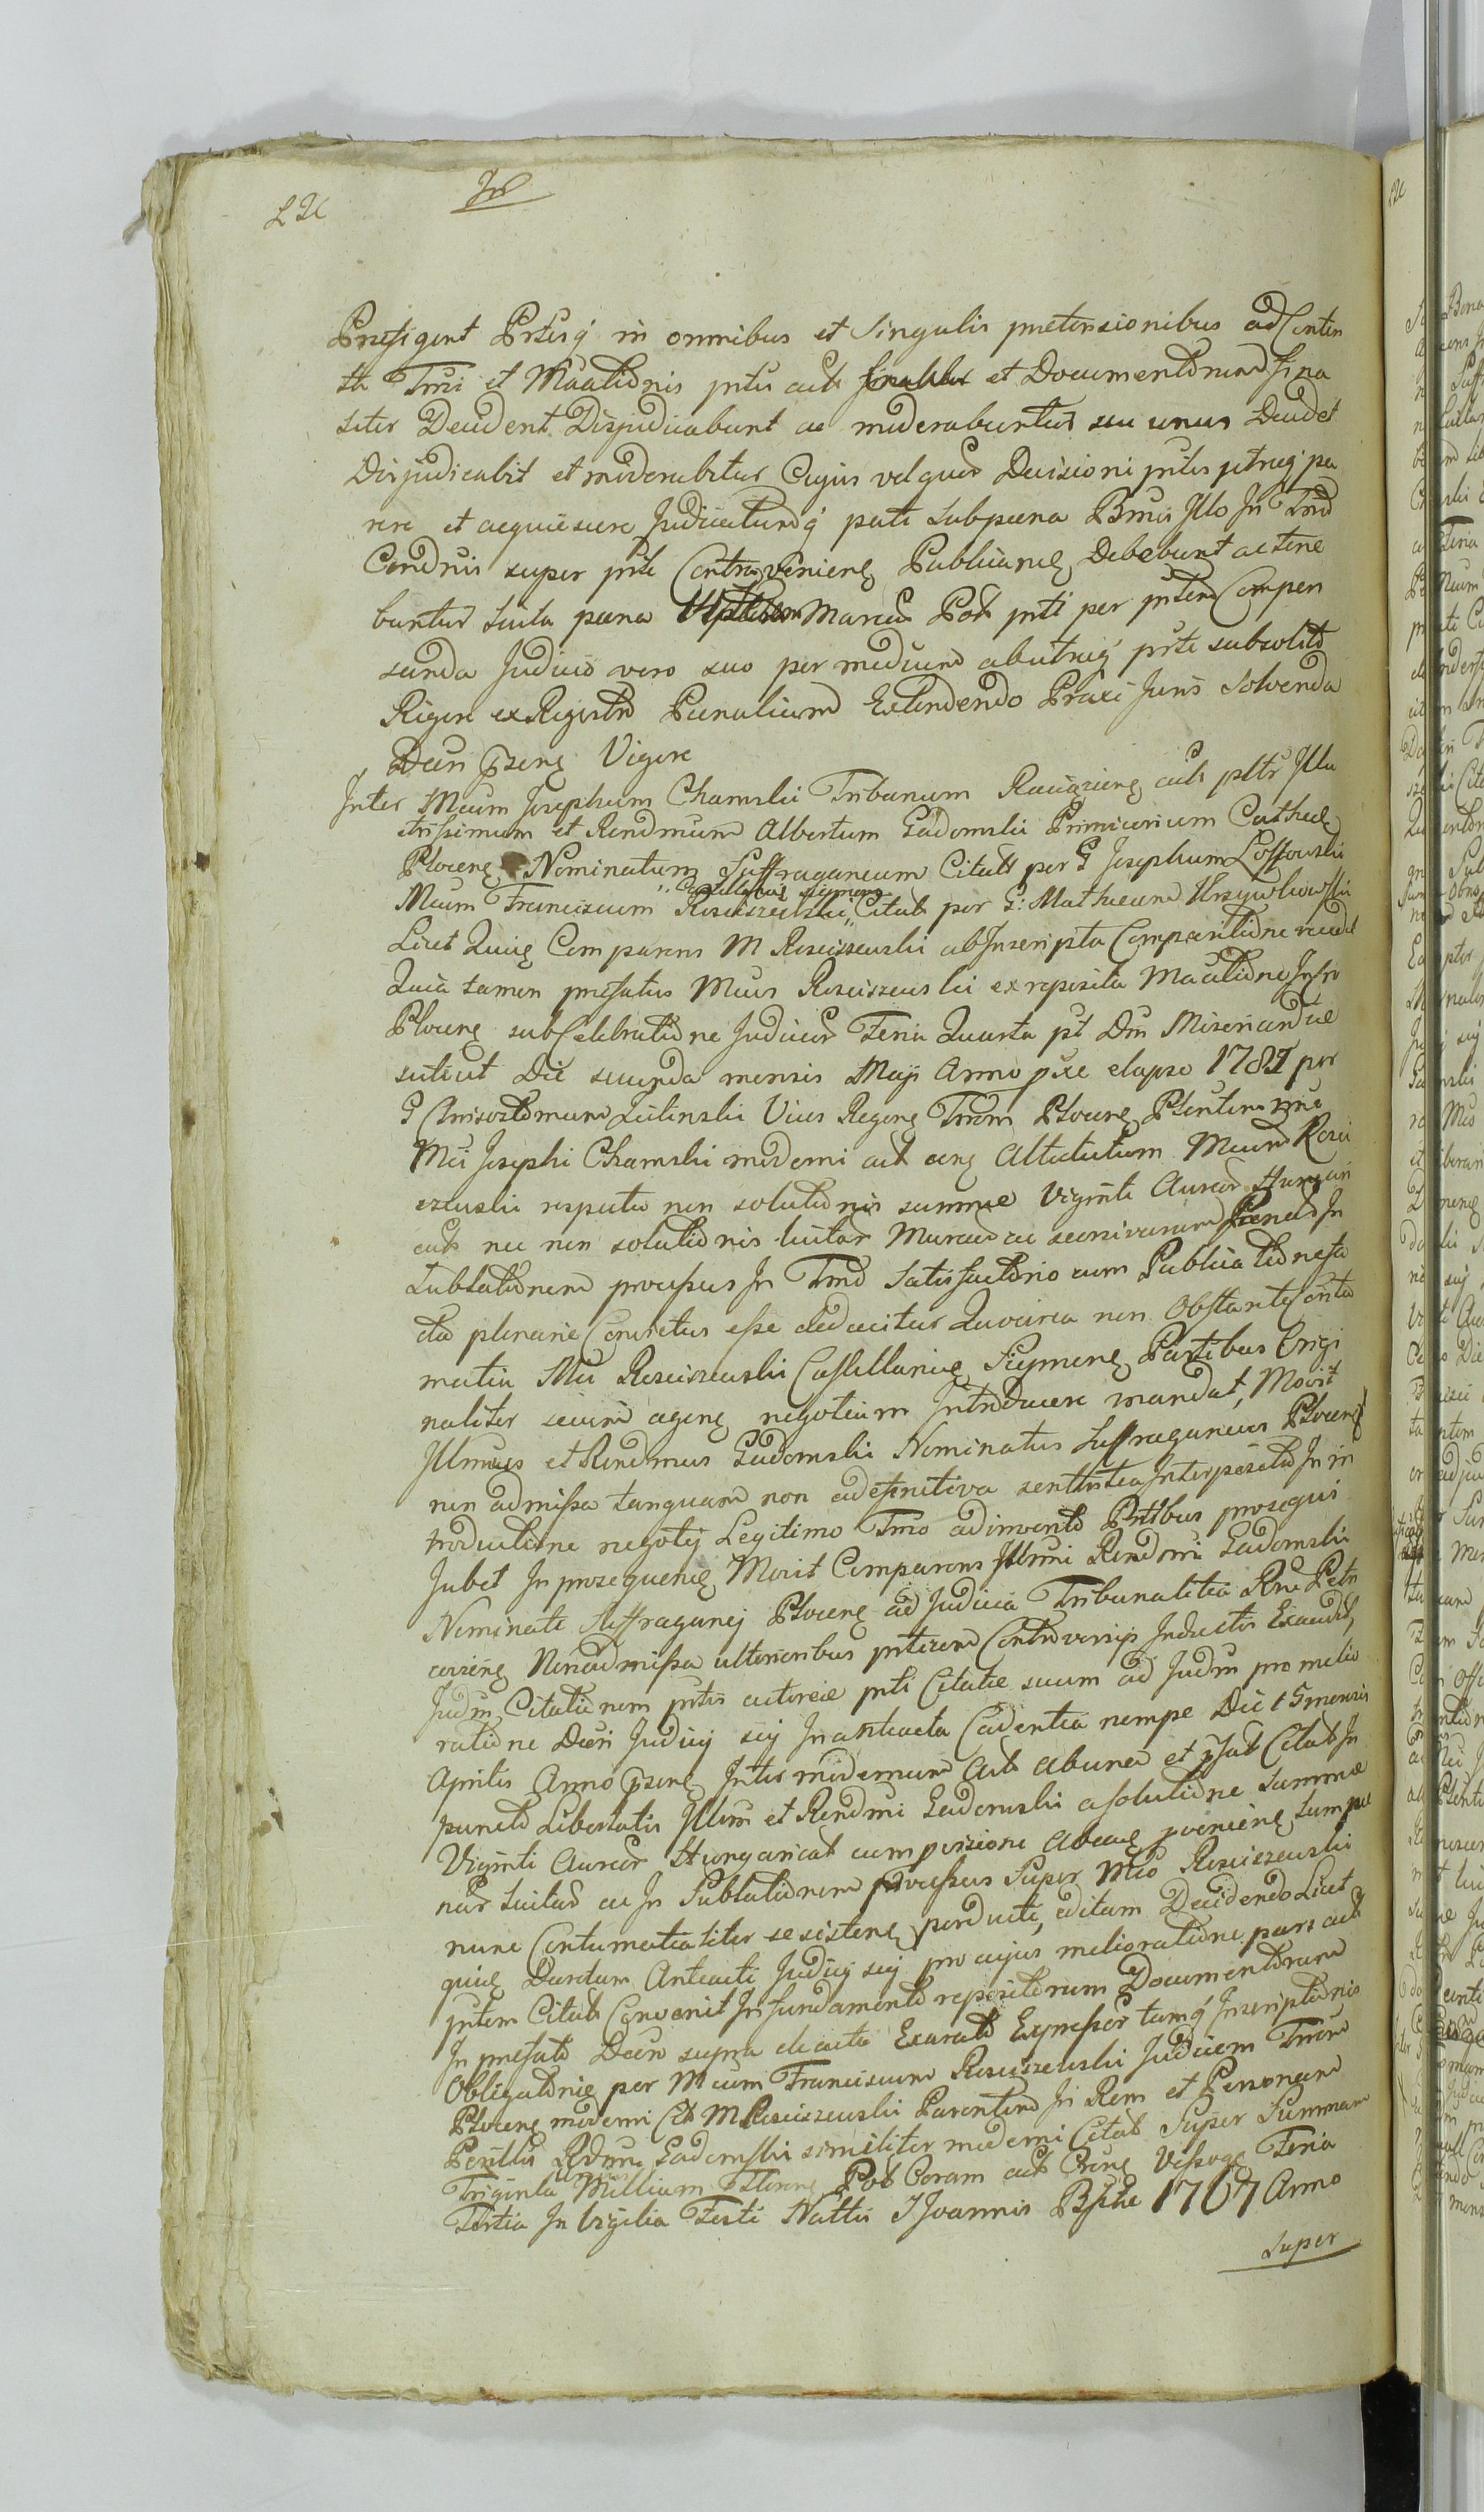 Prefigent Prtesq in omnibus et Singulis pretensionibus ad Conten
ta Tmi et Maaтidnis prtis act et Documentorum fina
liter Decident Disjudicabunt ac moderabuntur seu unus Decidet
Disjudicabit et moderabitur Cujus vel quor Decisioni prtes utraq pa
rere et acquiescere Judicatumq pati sub paena Bmis Illo In Tmo
Condnis super prte Contraveniens Publicans Debebunt ac tene
buntur Luita paena Marcar Pol prti per prtem Compen
sanda Judicio vero suo per medium ab utraq prte sub solito
Rigore ex Registro Paenalium Extendendo Praxi Juris Solvenda
Decri psens Vigore
Inter Mcum Josephum Chamski Tribunum Raciąziens act pltr Illu
strissimum et Rendmum Albertum Gadomski Primicerium Cathedr
Plocens Nominatum Suffraganeum Citatt per G Josephum Lossowski
Castellanid Siepmens
Mcum Franciscum Rosciszewski Citat per G: Mathaeum Krzywkowski
Licet Quius Comparens M Rosciszewski ab Inscripta Comparitione recedit
Quia tamen prefatus Mcus Rosciszewski ex reposita Maatidne In fro
Plocens sub Celebratione Judicior Feria Quarta pt Dm Misericordiae
sciticet Die secunda mensis Maji Anno pxe elapso 1787 per
G Chrisostomum Zielinski Vices Regens Trrm Plocens Plentem nne
Mci Josephi Chamski moderni act cons Attentatum Mcum Rosci
szewski respectu non solutidnis summae Viginti Aureor Hungari
cat nec non solutidnis luitar Marcar ac seccivarum Paenar In
Sublatidnem processus In Tmo Satisfactorio cum Publicatidne fa
cta plenarie Convictus esse deducitur Quocirca non Obstante Contu
matia Mci Rosciszewski Castellanid Siepmens Partibus Origi
naliter secum agens negotium Introducere mandat, Movit
Illmus et Rendmus Gadomski Nominatus Suffraganeus Plocens
non admissa tanquam non a definitiva sententia Interposita In in
troductione negotij Legitimo Tmo adinvento Prtibus prosequi
Jubet In prosequens Movit Comparens Illmi Rendmi Gadomski
Nominati Suffraganej Plocens ad Judicia Tribunalitia Rni Petri
coviens Non admissa ulterioribus prtium Controversijs Inductis Exaudit
Judm Citatidnem prtis actoreae prti Citatae suum ad Judm pro melio
ratidne Decri Judicij sui In anteacta Cadentia nempe Die 15 mensis
Aprilis Anno psens Inter modernum Act ab una et psat Citat In
puncto Libertatis Illmi et Rendmi Gadomski a solutidne Summae
Viginti Aureor Hungaricat cum provisione ab eaq proveniens tum pae
nar luitar ac In Sublatidnem processus Super Mco Rosciszewski
nunc Contumatialiter se sistens perducti, editam Decidendo Licet
quius Decretum Anteacti Judicij sui pro cujus melioratidne pars act
prtem Citat Convenit In fundamento repositorum Documentorum
In prefato Decro supra de acta Exarato Expressor tamq Inscriptidnis
Obligatoriis per Mcum Franciscum Rosciszewski Judicem Trrm
Plocens moderni Ctt M Rosciszewski Parentem In Rem et Personam
Perillis Redmi Gadomski similiter moderni Citat Super Summam
Triginta Millium Floreni Pol Coram act Crens Vissogr Feria
Tertia In Vigilia Festi Nattis S Joannis Bpttae 1767 Anno
Super